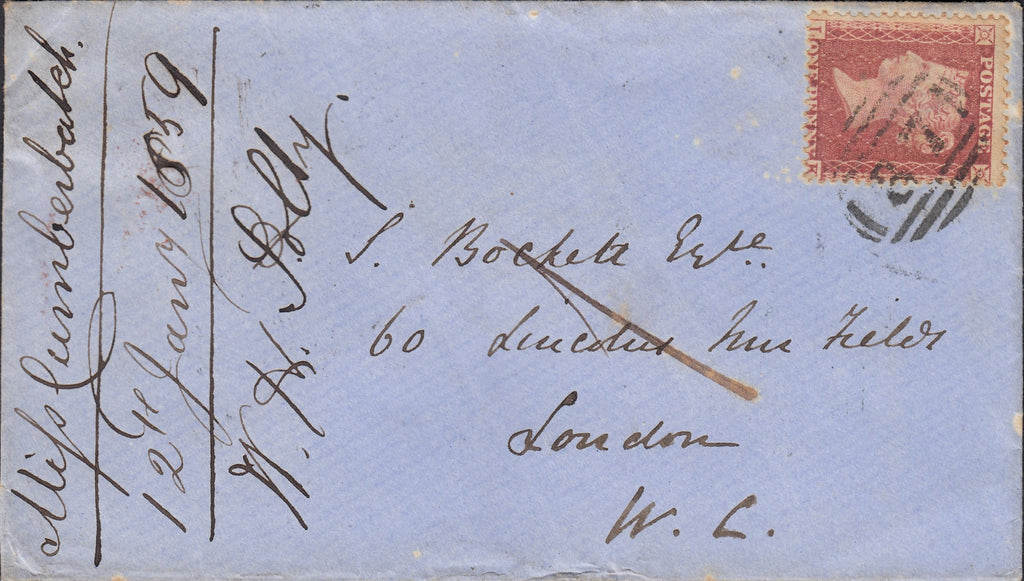 Miss Cumberbatch.
12th Jany 1859
W. H.
POSTAGE
ONE PENNY
S. Bockett Esqre.
60 Lincolns Inn Fields
London
W. C.